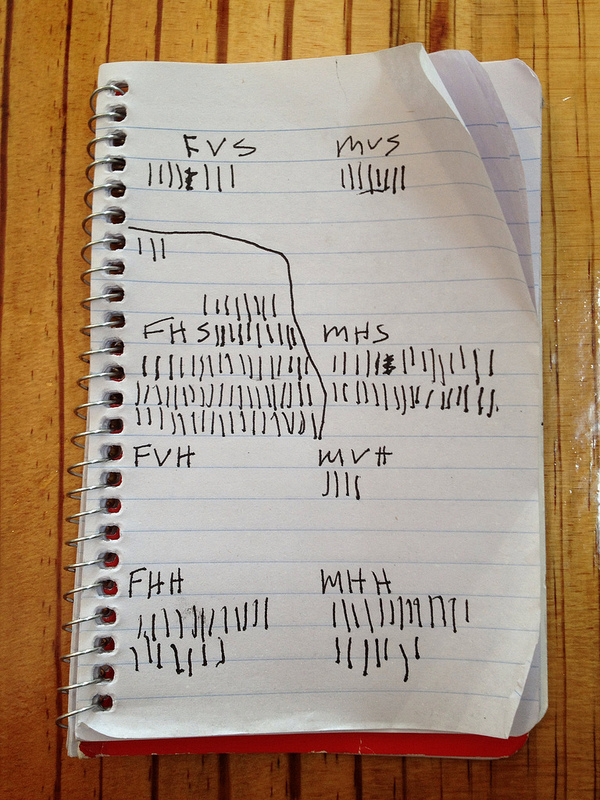 FVS MVS
FHS MHS
FVH MVH
FHH MHH